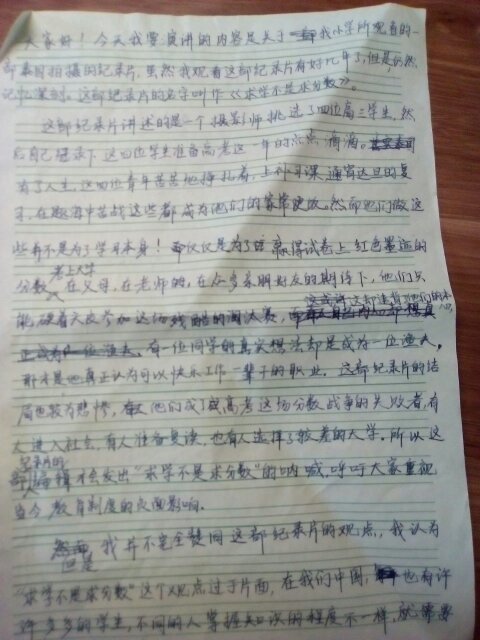 大家好！今天我要演讲的内容是关于我小学所观看的一
部泰国拍摄的纪录片，虽然我观看这部纪录片有好几年了，但是仍然
记忆深刻。这部纪录片的名字叫作《求学不是求分数》。
这部纪录片讲述的是一个摄影师挑选了四位高三学生，然
后自己记录下这四位学生准备高考这一年的点点滴滴。
为了人生，这四位青年苦苦地挣扎着，上补习课，通宵达旦的复
习，在题海中苦战这些都成为他们的家常便饭。然而他们做这
些并不是为了学习本身！而仅仅是为了赢得试卷上红色墨迹的
分数，考上大学，在父母，在老师的，在众多亲朋好友的期待下，他们只
能硬着头皮参加这场残酷的淘汰赛，这或许这都违背了他们的本心
有一位同学的真实想法却是成为一位渔夫，
那才是他真正认为可以快乐工作一辈子的职业。这部纪录片的结
局也较为悲惨，他们成了高考这场分数战争的失败者，有
人进入社会，有人准备复读，也有人选择了较差的大学。所以这
才会发出“求学不是求分数”的呐喊，呼吁大家重视
当今教育制度的负面影响。
但是我并不完全赞同这部纪录片的观点，我认为
“求学不是求分数”这个观点过于片面，在我们中国，也有许
许多多的学生，不同的人掌握知识的程度不一样，就需要